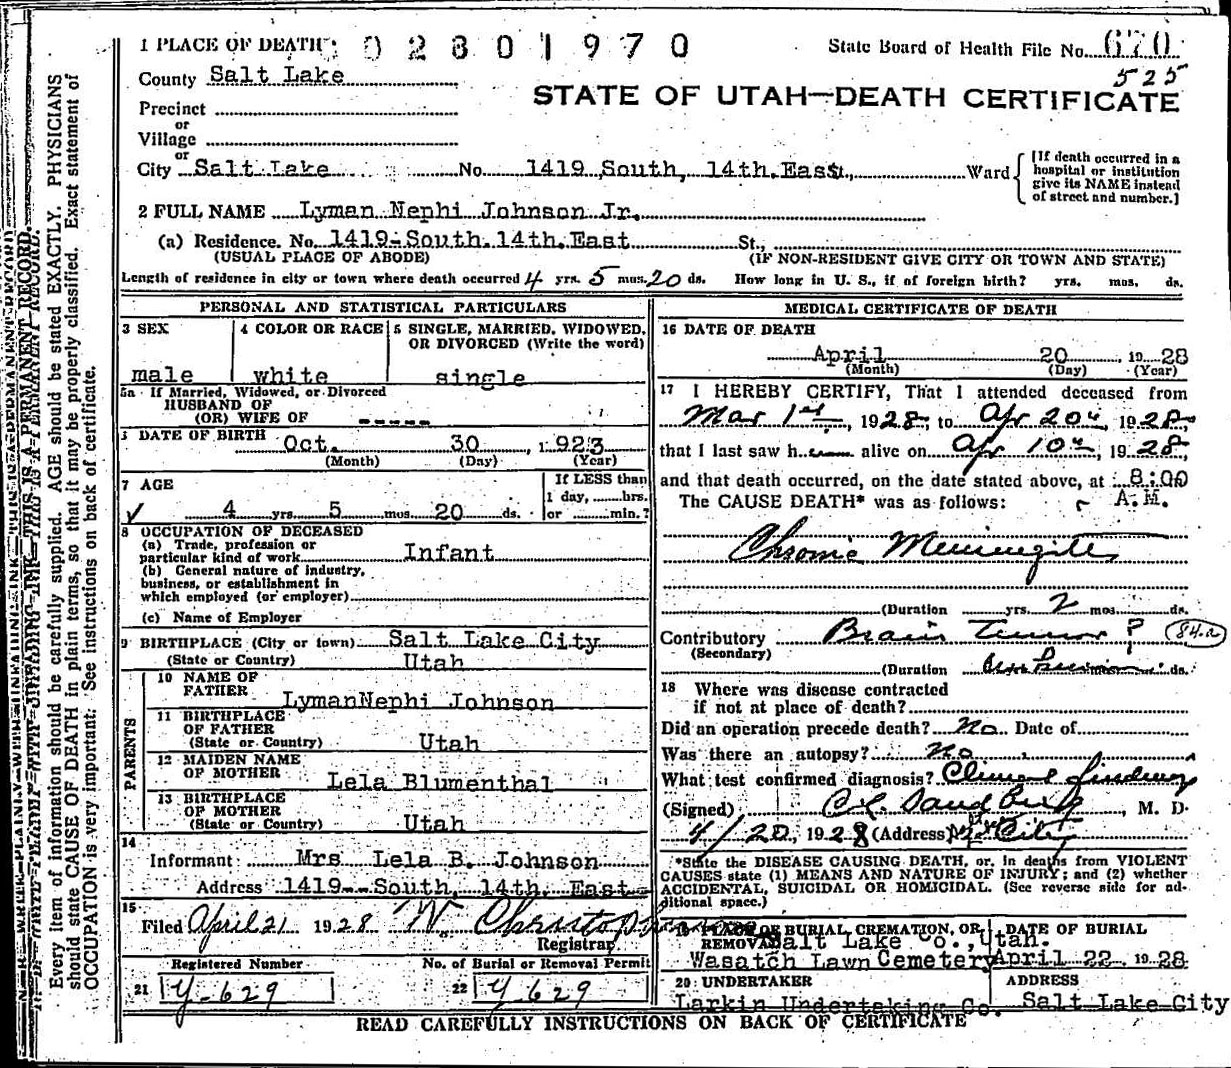 1 PLACE OF DEATH 02801970 State Board of Health File No. 670
525
County Salt Lake
STATE OF UTAH—DEATH CERTIFICATE
Precinct
or
Village
or
City Salt Lake No. 1419 South, 14th. East. Ward
[If death occurred in a hospital or institution give its NAME instead of street and number.]
2 FULL NAME Lyman Nephi Johnson Jr.
(a) Residence. No. 1419-South. 14th. East St.,
(USUAL PLACE OF ABODE) (IF NON-RESIDENT GIVE CITY OR TOWN AND STATE)
Length of residence in city or town where death occurred 4 yrs. 5 mos. 20 ds. How long in U. S., if of foreign birth? yrs. mos. ds.
PERSONAL AND STATISTICAL PARTICULARS
3 SEX
male
4 COLOR OR RACE
white
5 SINGLE, MARRIED, WIDOWED, OR DIVORCED (Write the word)
single
5a If Married, Widowed, or Divorced
HUSBAND OF
(OR) WIFE OF -----
DATE OF BIRTH Oct. 30, 1923
(Month) (Day) (Year)
7 AGE
4 yrs. 5 mos. 20 ds.
If LESS than
1 day, hrs.
or min.?
8 OCCUPATION OF DECEASED
(a) Trade, profession or
particular kind of work Infant
(b) General nature of industry,
business, or establishment in
which employed (or employer)
(c) Name of Employer
9 BIRTHPLACE (City or town) Salt Lake City
(State or Country) Utah
PARENTS
10 NAME OF
FATHER LymanNephi Johnson
11 BIRTHPLACE
OF FATHER
(State or Country) Utah
12 MAIDEN NAME
OF MOTHER Lela Blumenthal
13 BIRTHPLACE
OF MOTHER
(State or Country) Utah
14
Informant Mrs Lela B. Johnson
Address 1419--South, 14th. East
15
Filed April 21 1928 W.
Registrar
Registered Number No. of Burial or Removal Permit
21 Y-629 22 Y 629
MEDICAL CERTIFICATE OF DEATH
16 DATE OF DEATH
April 20, 1928
(Month) (Day) (Year)
17 I HEREBY CERTIFY, That I attended deceased from
Mar 1st, 1928, to Apr 20th, 1928,
that I last saw h alive on Apr 10th, 1928,
and that death occurred, on the date stated above, at 8:00
The CAUSE DEATH* was as follows: A.M.
Chronic Meningitis
(Duration yrs. 2 mos. ds.
Contributory Brain Tumor ? 84.a
(Secondary)
(Duration ds.
18 Where was disease contracted
if not at place of death?
Did an operation precede death? No Date of
Was there an autopsy? No
What test confirmed diagnosis? Clinical findings
(Signed) C.L. Sandberg, M. D
4/20, 1928 (Address) City
*State the DISEASE CAUSING DEATH, or, in deaths from VIOLENT
CAUSES state (1) MEANS AND NATURE OF INJURY; and (2) whether
ACCIDENTAL, SUICIDAL OR HOMICIDAL. (See reverse side for ad-
ditional space.)
19 PLACE OF BURIAL, CREMATION, OR
REMOVAL Salt Lake Co., Utah.
Wasatch Lawn Cemetery
DATE OF BURIAL
April 22 1928
20 UNDERTAKER
Larkin Undertaking Co.
ADDRESS
Salt Lake City
READ CAREFULLY INSTRUCTIONS ON BACK OF CERTIFICATE
Every item of information should be carefully supplied. AGE should be stated EXACTLY. PHYSICIANS
should state CAUSE OF DEATH in plain terms, so that it may be properly classified. Exact statement of
OCCUPATION is very important. See instructions on back of certificate.
THIS IS A PERMANENT RECORD.